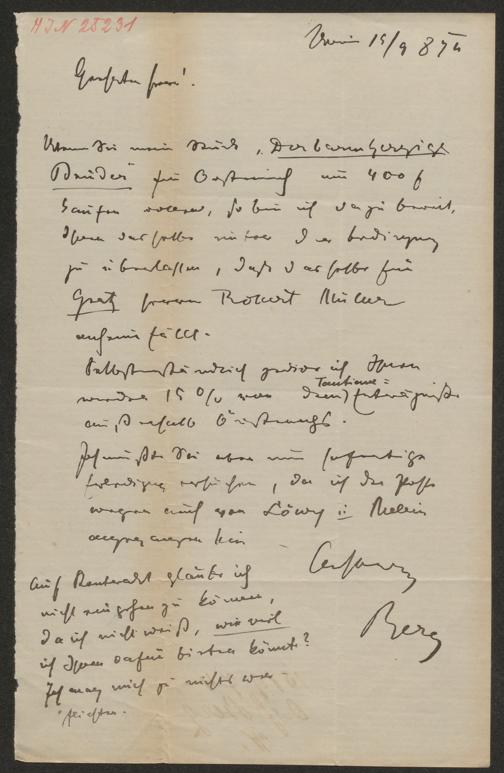 HJN 25231
Wien 15/9 87
Geehrter Herr!
Wenn Sie mein Stück, „Der barmherzige
Bruder" für Oesterreich um 400 f
kaufen wollen, so bin ich dazu bereit,
Ihnen dasselbe unter der Bedingung
zu überlassen, daß dasselbe für
Graz Herrn Robert Müller
anheimfällt.
Selbstverständlich sichere ich Ihnen
15 % von den Tantième=Erträgnisse
außerhalb Österreichs.
Ich müßte Sie aber um sofortige
Erledigung ersuchen, da ich des Stückes
wegen auch von Löwy u.
angegangen bin
Auf glaube ich
nicht eingehen zu können,
da ich nicht weiß, wie viel
ich Ihnen dafür bieten könnte?
Ich mag mich zu nichts ver-
pflichten.
Berg